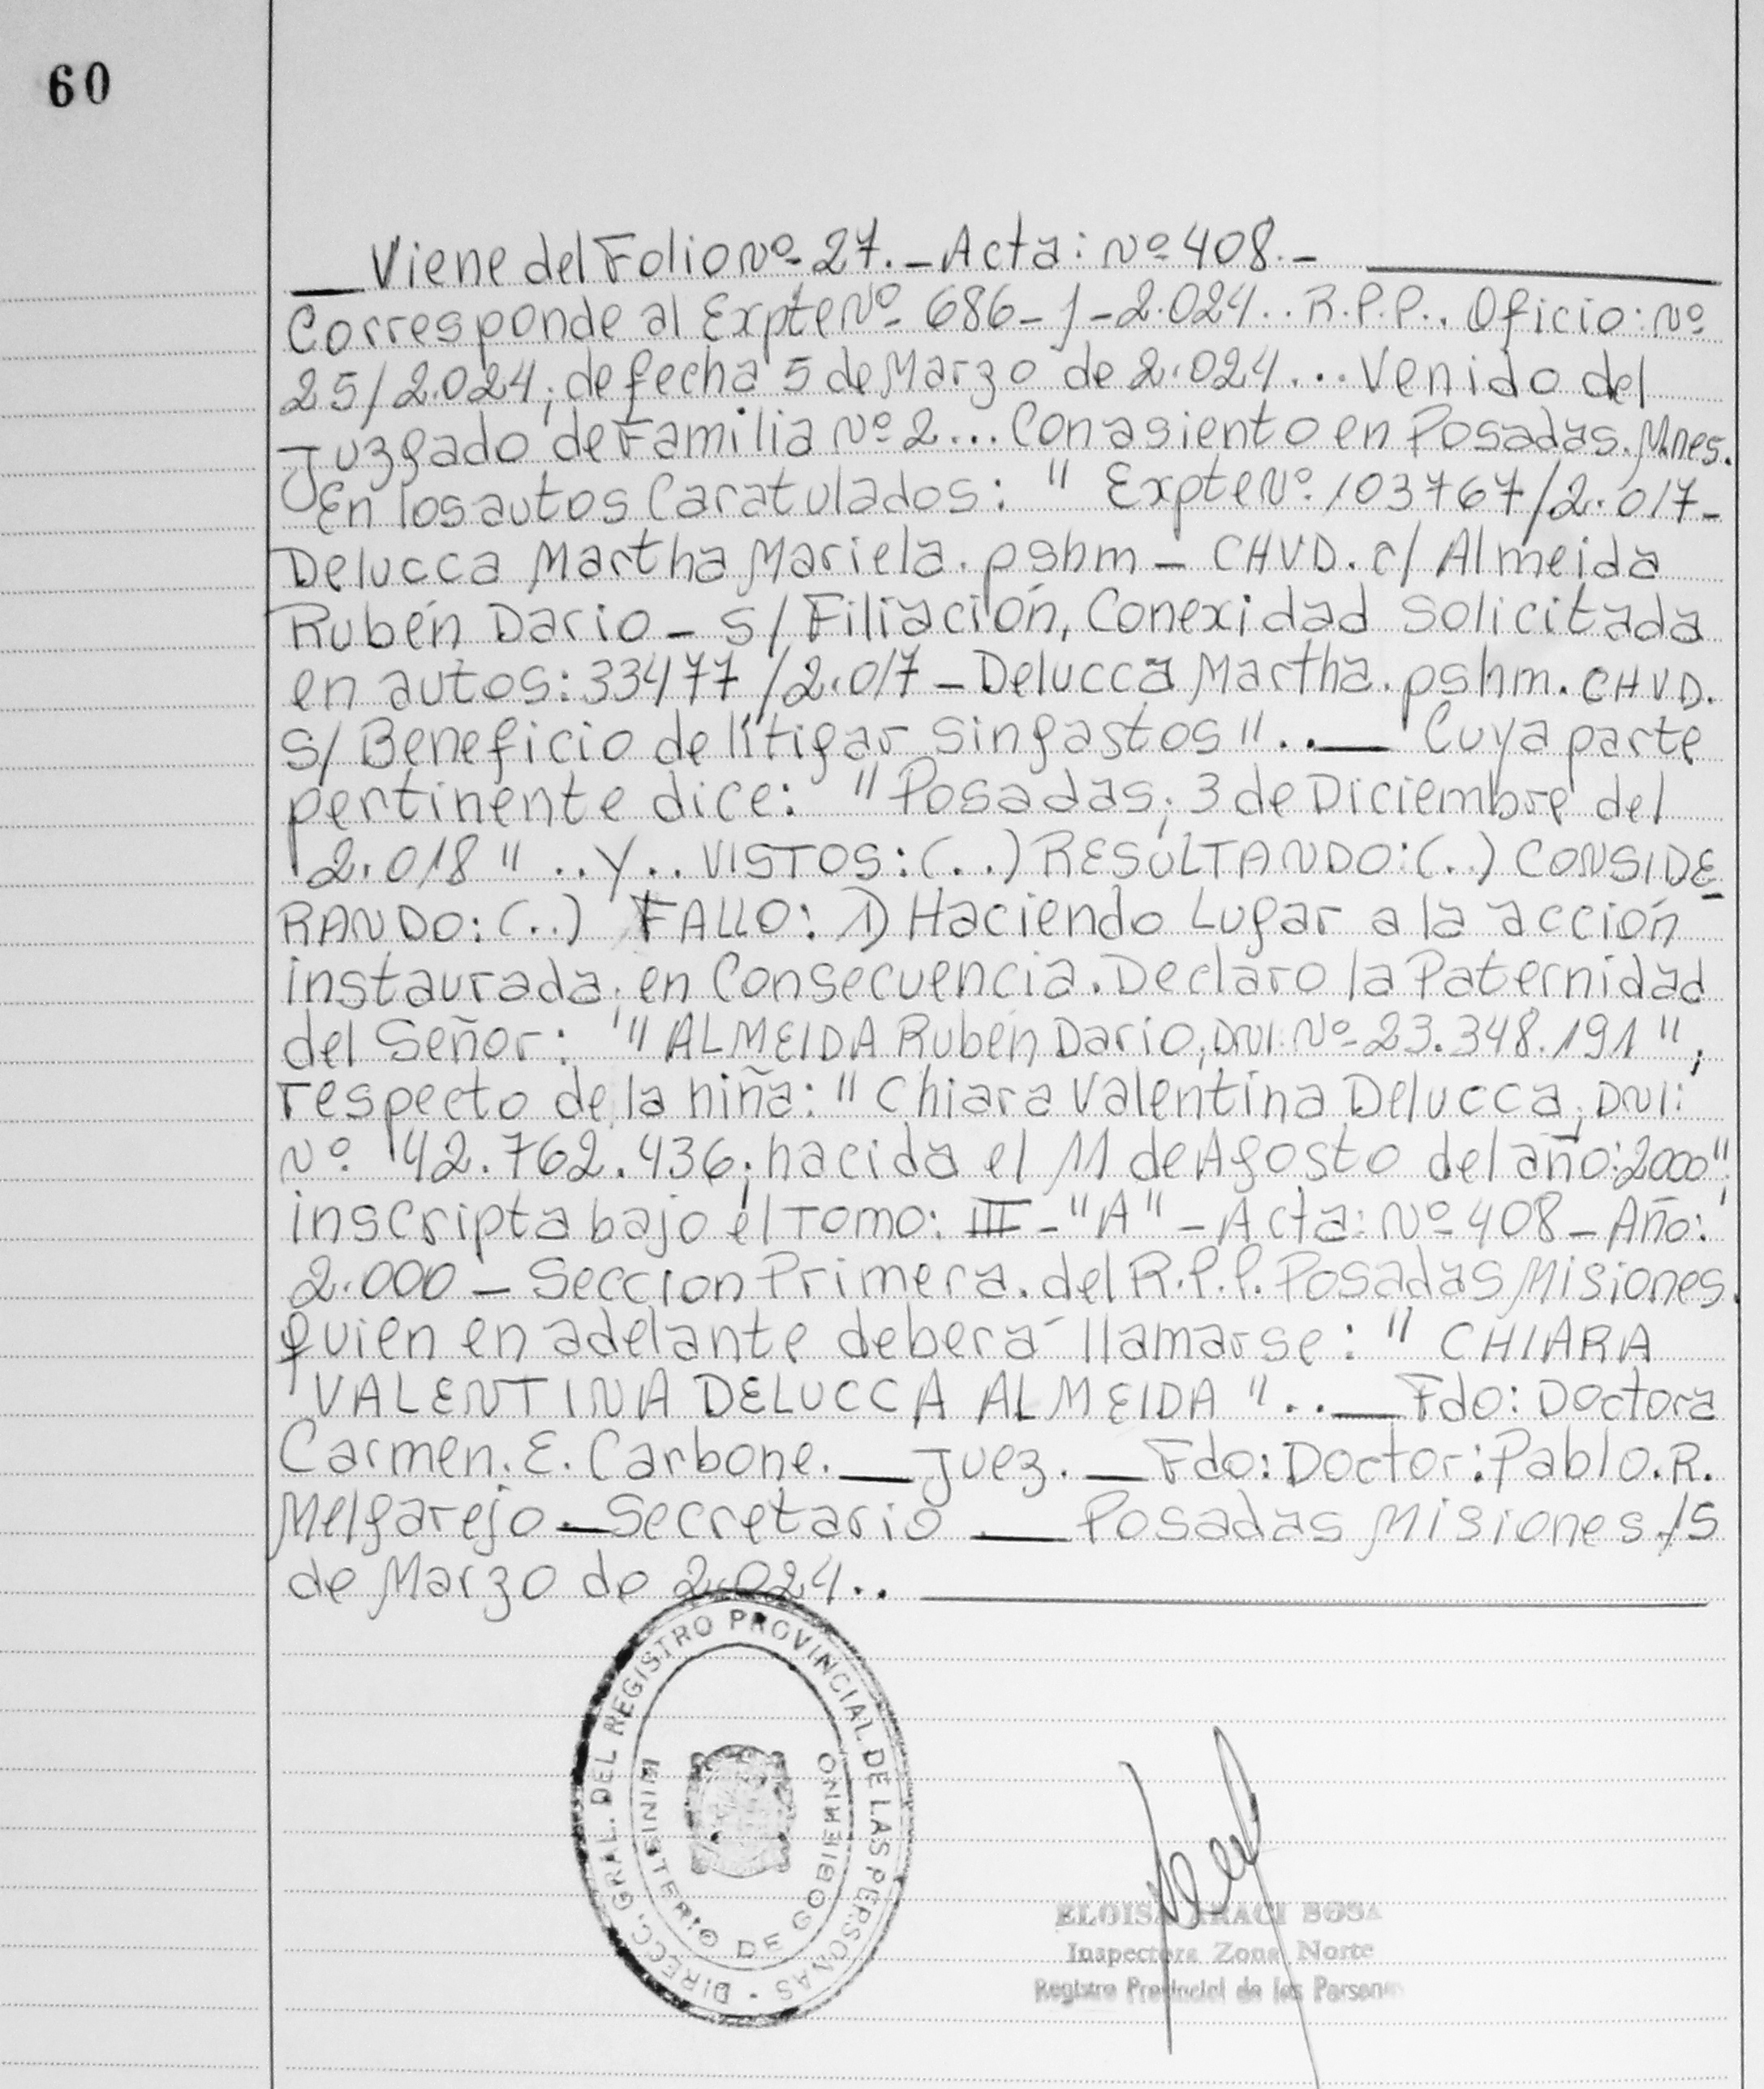 60
Viene del Folio Nº 27. - Acta: Nº 408. -
Corresponde al Expte Nº 686-J-2.024.. R.P.P.. Oficio: Nº
25/2.024, de fecha 5 de Marzo de 2.024... Venido del
Juzgado de Familia Nº 2... Con asiento en Posadas. Mnes.
En los autos Caratulados: " Expte Nº. 103767/2.017-
Delucca Martha Mariela. pshm - CHVD. c/ Almeida
Rubén Dario - S/ Filiación, Conexidad Solicitada
en autos: 33477/2.017 - Delucca Martha. pshm. CHVD.
S/ Beneficio de litigar sin gastos".. — Cuya parte
pertinente dice: "Posadas, 3 de Diciembre del
2.018" .. Y.. VISTOS: (..) RESULTANDO: (..) CONSIDE
RANDO: (..) FALLO: 1) Haciendo Lugar a la acción
instaurada, en Consecuencia. Declaro la Paternidad
del Señor: "ALMEIDA Rubén Dario, DNI. Nº 23.348.191",
respecto de la niña: " Chiara Valentina Delucca, DNI:
Nº. 42.762.436, nacida el 11 de Agosto del año: 2000",
inscripta bajo el Tomo: III - "A" - Acta: Nº 408 - Año:
2.000 - Seccion Primera. del R.P.P. Posadas Misiones.
quien en adelante deberá llamarse: " CHIARA
VALENTINA DELUCCA ALMEIDA ".. — Fdo: Doctora
Carmen. E. Carbone. — Juez. — Fdo: Doctor: Pablo. R.
Melgarejo — Secretario — Posadas Misiones 15
de Marzo de 2.024..
DIRECC. GRAL. DEL REGISTRO PROVINCIAL DE LAS PERSONAS
MINISTERIO DE GOBIERNO
ELOISA ARACI SOSA
Inspectora Zona Norte
Registro Provincial de las Personas